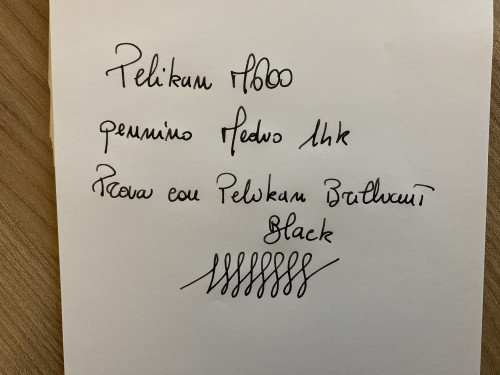 Pelikan M600
pennino Medio 14k
Prova con Pelikan Brilliant
Black